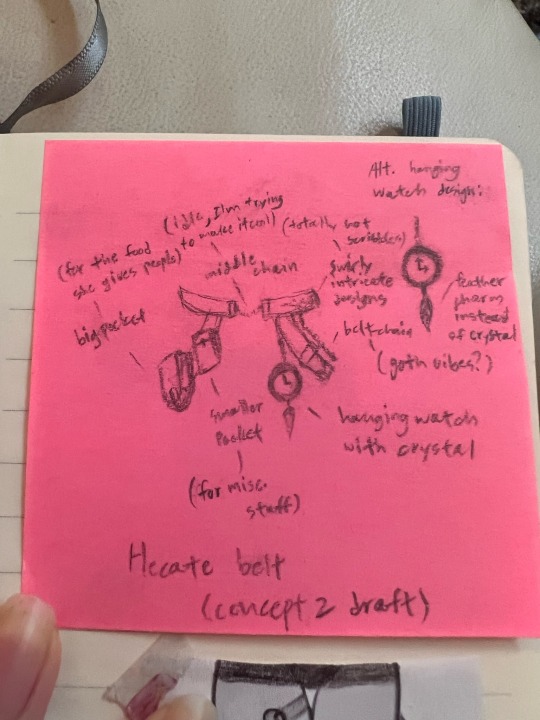 Alt. hanging
watch design:
(idk, I'm trying
to make it cool)
(totally not
scribbles)
(for the food
she gives people)
middle chain
swirly
intricate
designs
big pocket
feather
pharm
instead
of crystal
belt chain
(goth vibes?)
smaller
pocket
hanging watch
with crystal
(for misc.
stuff)
Hecate belt
(concept 2 draft)